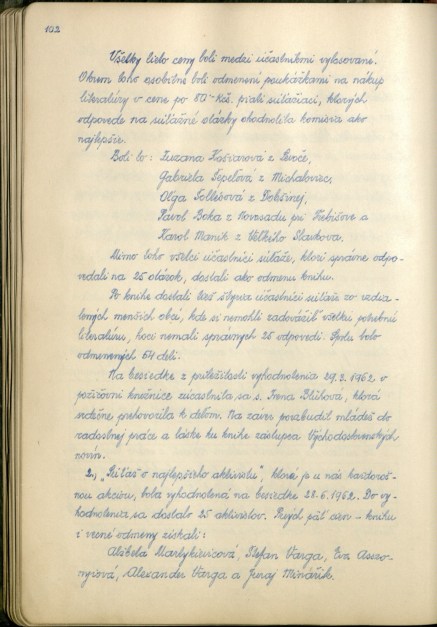 102
Všetky tieto ceny boli medzi účastníkmi vylosované.
Okrem toho osobitne boli odmenení poukážkami na nákup
literatúry v cene po 50 Kčs. piati súťažiaci, ktorých
odpovede na súťažné otázky ohodnotila komisia ako
najlepšie.
Boli to: Zuzana Koščárová z
Gabriela Šepeľová z Michaloviec,
Oľga Tollésová z Dobšinej,
Pavol Boka z Novosadu pri Trebišove a
Karol Maník z Veľkého Slavkova.
Mimo toho všetci účastníci súťaže, ktorí správne odpo-
vedali na 25 otázok, dostali ako odmenu knihu.
Po knihe dostali tiež štyria účastníci súťaže zo vzdia-
lených menších obcí, kde si nemohli zadovážiť všetku potrebnú
literatúru, hoci nemali správnych 25 odpovedí. Spolu bolo
odmenených 54 detí.
Na besiedke z príležitosti vyhodnotenia 29.3.1962 v
požičovni knižnice zúčastnila sa s. Irena Blühová, ktorá
srdečne prehovorila k deťom. Na záver povzbudil mládež do
radostnej práce a láske ku knihe zástupca Východoslovenských
novín.
2., „Súťaž o najlepšieho aktivistu", ktorá je u nás každoroč-
nou akciou, bola vyhodnotená na besiedke 28.6.1962. Do vy-
hodnotenia sa dostalo 25 aktivistov. Prvých päť cien - knihu
i vecné odmeny získali:
Alžbeta Štefan Varga, Eva Asszo-
nyiová, Alexander Varga a Juraj Mlinárik.